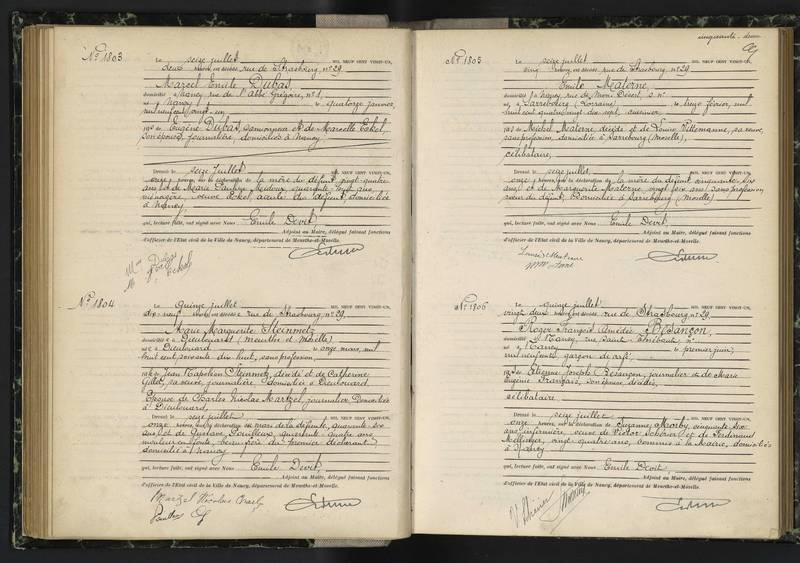 N° 1803
Le seize juillet MIL NEUF CENT VINGT-UN,
deux heures, est décédé rue de Strasbourg, n° 29,
Marcel Emile Dubas,
domicilié à Nancy, rue de l'abbé Grégoire, n° 1,
né à Nancy le quatorze janvier
mil neuf cent vingt-un
fils de Eugène Dubas, et de Marcelle Eckel,
son épouse, journalière, domiciliés à Nancy
Dressé le seize juillet MIL NEUF CENT VINGT-UN,
onze heures, sur la déclaration de la mère du défunt, vingt-quatre
ans et de Marie quarante-huit ans,
ménagère, veuve Eckel, aïeule du défunt, domiciliée
à Nancy
qui, lecture faite, ont signé avec Nous Emile Devit,
Adjoint au Maire, délégué faisant fonctions
d'officier de l'Etat civil de la Ville de Nancy, département de Meurthe-et-Moselle.
N° 1804
Le quinze juillet MIL NEUF CENT VINGT-UN,
dix-neuf heures, rue de Strasbourg, n° 29,
Marie Marguerite Steinmetz
domiciliée à Dieulouard (Meurthe et Moselle)
née à Dieulouard le onze mars, mil
huit cent soixante dix huit, sans profession,
fille de Jean Napoléon Steinmetz, décédé et de Catherine
sa veuve, journalière, domiciliée à Dieulouard,
Epouse de Charles Nicolas Martzel, journalier domicilié
à Dieulouard,
Dressé le seize juillet MIL NEUF CENT VINGT-UN,
onze heures, sur la déclaration du mari de la défunte, quarante-six
ans, et de Gustave quarante quatre ans
beau-frère du premier déclarant
domicilié à Nancy
qui, lecture faite, ont signé avec Nous Emile Devit,
Adjoint au Maire, délégué faisant fonctions
d'officier de l'Etat civil de la Ville de Nancy, département de Meurthe-et-Moselle.
Martzel Nicolas Charles
cinquante-deux
N° 1805
Le seize juillet MIL NEUF CENT VINGT-UN,
cinq heures, rue de Strasbourg, n° 29,
Emile Materne,
domicilié à Nancy, rue de Mon Désert,
né à Sarrebourg (Lorraine) le onze février, mil
huit cent quatre vingt dix sept,
fils de Michel Materne décédé et de Louise sa veuve,
sans profession, domiciliée à Sarrebourg (Moselle),
célibataire,
Dressé le seize juillet MIL NEUF CENT VINGT-UN,
onze heures, sur la déclaration de la mère du défunt, cinquante-six
ans, et de Marguerite Materne, vingt six ans, sans profession,
sœur du défunt, domiciliées à Sarrebourg (Moselle)
qui, lecture faite, ont signé avec Nous Emile Devit,
Adjoint au Maire, délégué faisant fonctions
d'officier de l'Etat civil de la Ville de Nancy, département de Meurthe-et-Moselle.
N° 1806
Le quinze juillet MIL NEUF CENT VINGT-UN,
vingt deux heures, rue de Strasbourg, n° 29,
Roger François Amédée Besançon,
domicilié à Nancy, rue Saint Thiébaut,
né à Nancy le premier juin,
mil neuf cent garçon de café,
fils de Etienne Joseph Besançon, journalier et de Marie
Eugénie Français, son épouse, décédés,
célibataire
Dressé le seize juillet MIL NEUF CENT VINGT-UN,
onze heures, sur la déclaration de Suzanne cinquante six
ans, infirmière, veuve de Victor Scherer et de Ferdinand
vingt quatre ans, commis à la Mairie, domiciliés
à Nancy
qui, lecture faite, ont signé avec Nous Emile Devit,
Adjoint au Maire, délégué faisant fonctions
d'officier de l'Etat civil de la Ville de Nancy, département de Meurthe-et-Moselle.